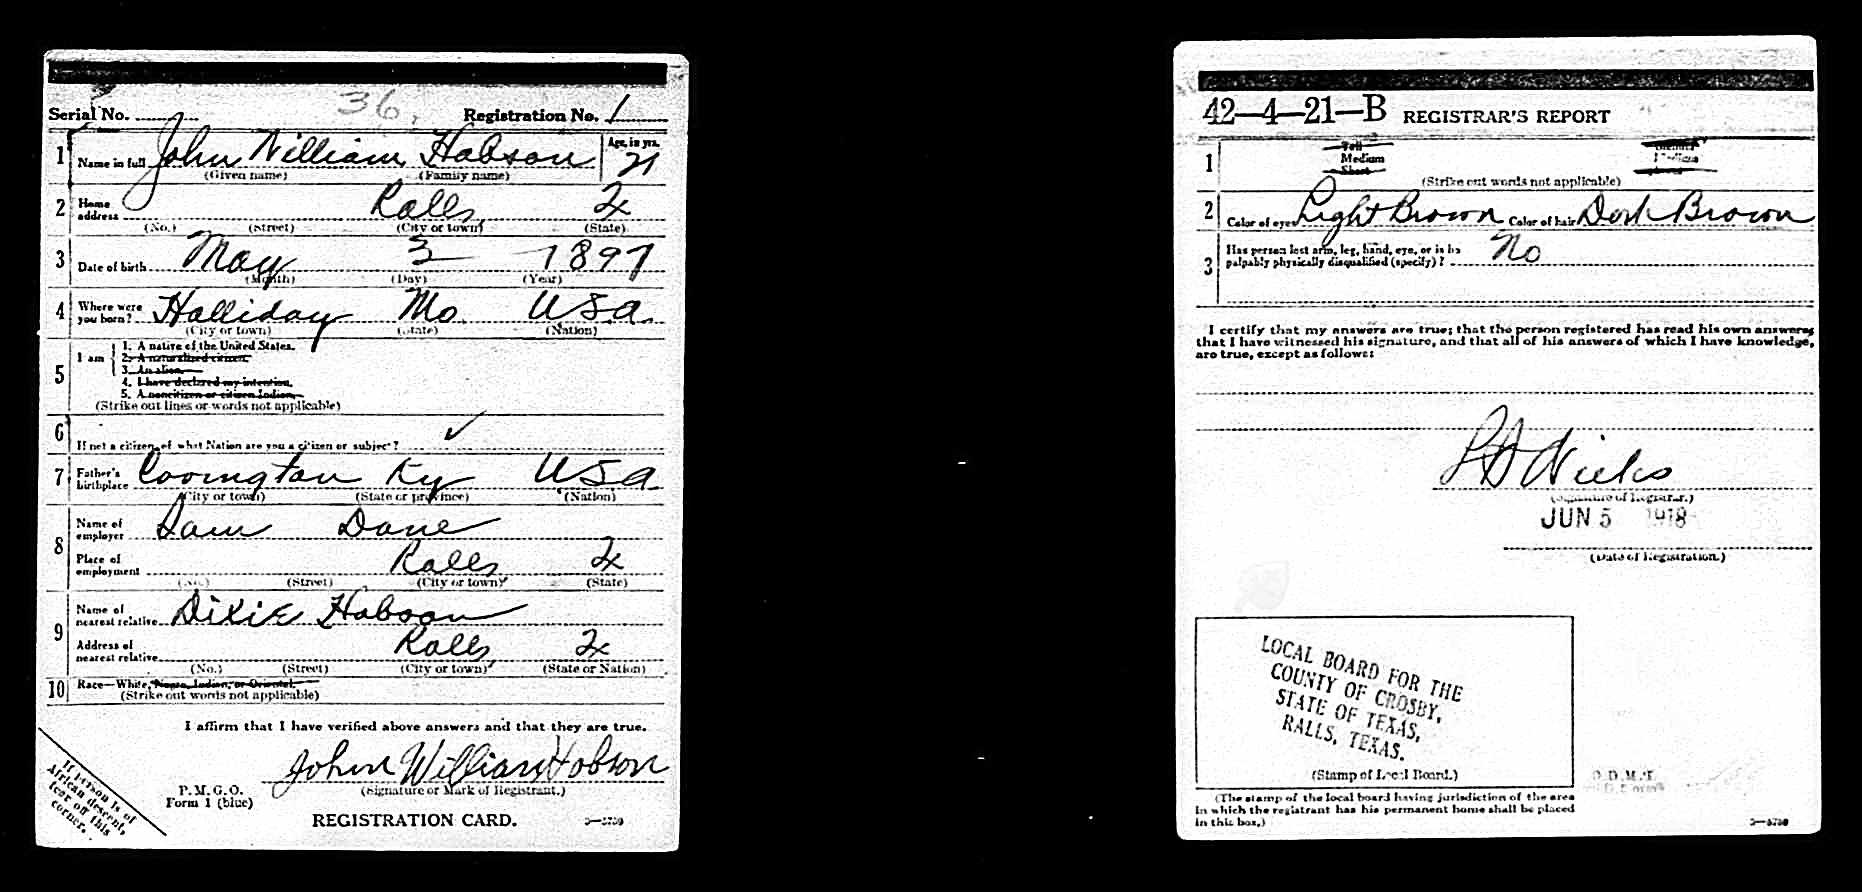 Serial No. 36. Registration No. 1
1 Name in full John William Hobson Age, in yrs. 21
(Given name) (Family name)
2 Home address Ralls, Tx
(No.) (Street) (City or town) (State)
3 Date of birth May 3 1897
(Month) (Day) (Year)
4 Where were you born? Halliday Mo. USA.
(City or town) (State) (Nation)
5 I am
1. A native of the United States.
2. A naturalized citizen.
3. An alien.
4. I have declared my intention.
5. A noncitizen or citizen Indian.
(Strike out lines or words not applicable)
6 If not a citizen, of what Nation are you a citizen or subject? ✓
7 Father's birthplace Covington Ky USA
(City or town) (State or province) (Nation)
8 Name of employer Sam Dane
Place of employment Ralls, Tx
(No.) (Street) (City or town) (State)
9 Name of nearest relative Dixie Hobson
Address of nearest relative Ralls, Tx
(No.) (Street) (City or town) (State or Nation)
10 Race—White, Negro, Indian, or Oriental.
(Strike out words not applicable)
I affirm that I have verified above answers and that they are true.
John William Hobson
(Signature or Mark of Registrant.)
P. M. G. O.
Form 1 (blue)
REGISTRATION CARD.
If person is
African descent,
tear off this
corner.
42—4—21—B REGISTRAR'S REPORT
1 Tall
Medium
Short
Slender
Medium
Stout
(Strike out words not applicable)
2 Color of eyes Light Brown Color of hair Dark Brown
3 Has person lost arm, leg, hand, eye, or is he
palpably physically disqualified (specify)? No
I certify that my answers are true; that the person registered has read his own answers,
that I have witnessed his signature, and that all of his answers of which I have knowledge,
are true, except as follows:
(Signature of Registrar.)
JUN 5 1918
(Date of Registration.)
LOCAL BOARD FOR THE
COUNTY OF CROSBY,
STATE OF TEXAS,
RALLS, TEXAS.
(Stamp of Local Board.)
(The stamp of the local board having jurisdiction of the area
in which the registrant has his permanent home shall be placed
in this box.)